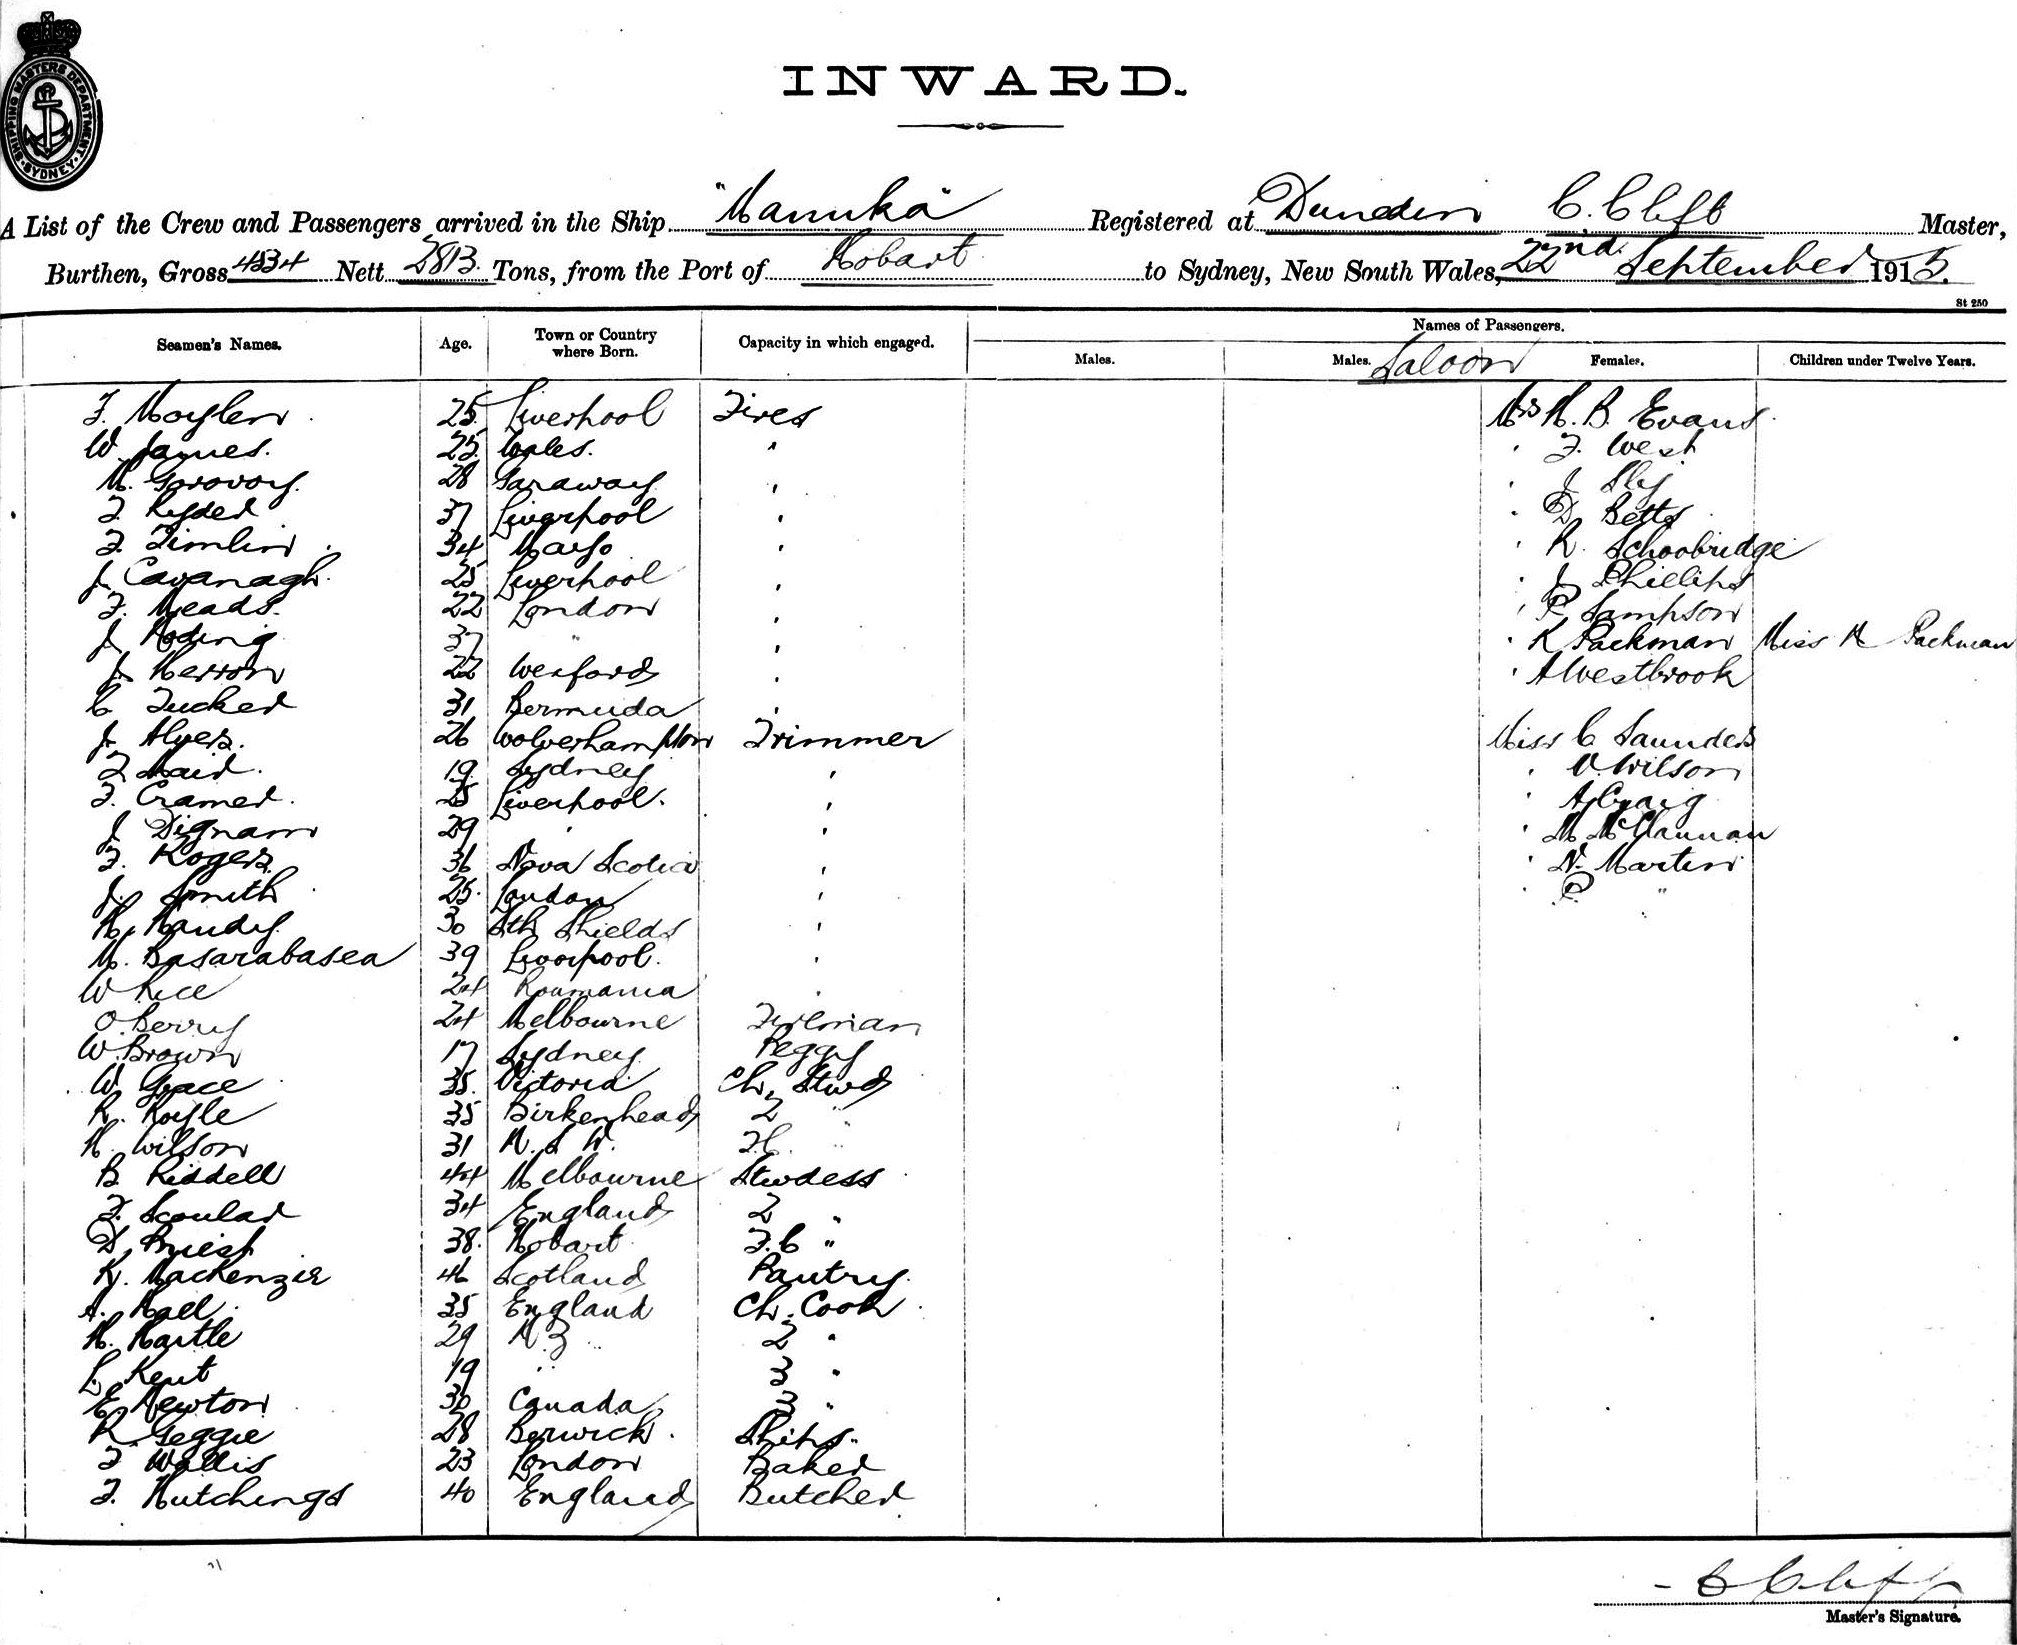 SHIPPING MASTERS DEPARTMENT. SYDNEY.
INWARD.
A List of the Crew and Passengers arrived in the Ship "Manuka" Registered at Dunedin C. Clift Master,
Burthen, Gross 4534 Nett 2813. Tons, from the Port of Hobart to Sydney, New South Wales, 22nd September 1915.
St 250
Seamen's Names. Age. Town or Country where Born. Capacity in which engaged. Names of Passengers.
Males. Males. Saloon Females. Children under Twelve Years.
25. Liverpool Fires Mrs H. B. Evans
W. James. 25 Wales. " " F. West
M. 28 " " J Sly
F. Ryder 37 Liverpool " " D. Betts
F. Timlin 34 Mayo " " R. Schoobridge
J. Cavanagh. 25 Liverpool " " J Phillips
F. Meads. 22 London " " P Sampson
J. 37 " " " K Packman Miss N Packman
J. Herron 22 Wexford " " A Westbrook
C Tucker 31 Bermuda "
J. Ayers. 26 Wolverhampton Trimmer Miss C Saunders
F Maid. 19. Sydney " " V. Wilson
F. Cramer. 25 Liverpool. " " A Craig
J. Dignam 29 " " " M
F. Rogers. 36 Nova Scotia " " N. Martin
J. Smith 25. London " " P. "
H. Handy. 30 Sth Shields "
M. Basarabasea 39 Liverpool. "
W Rice 24 Roumania "
O. Berry 24 Melbourne Fireman
W. Brown 17 Sydney. Peggy
W. Grace 35. Victoria Ch. Stwd
R. Royle 35 Birkenhead 2 "
H. Wilson 31 N. S W. F.C. "
B Riddell 44 Melbourne Stwdess
F. Scoular 34 England 2 "
D. Priest 38. Hobart F. C "
K. MacKenzie 46 Scotland Pantry.
A. Hall. 35 England Ch. Cook
H. Hartle 29 N Z 2 "
L. Kent 19 " 3 "
E. Newton 30 Canada 3 "
R Geggie 28 Berwick. Ships "
F Wallis 23 London Baker
F. Hutchings 40 England Butcher
C Clift
Master's Signature.